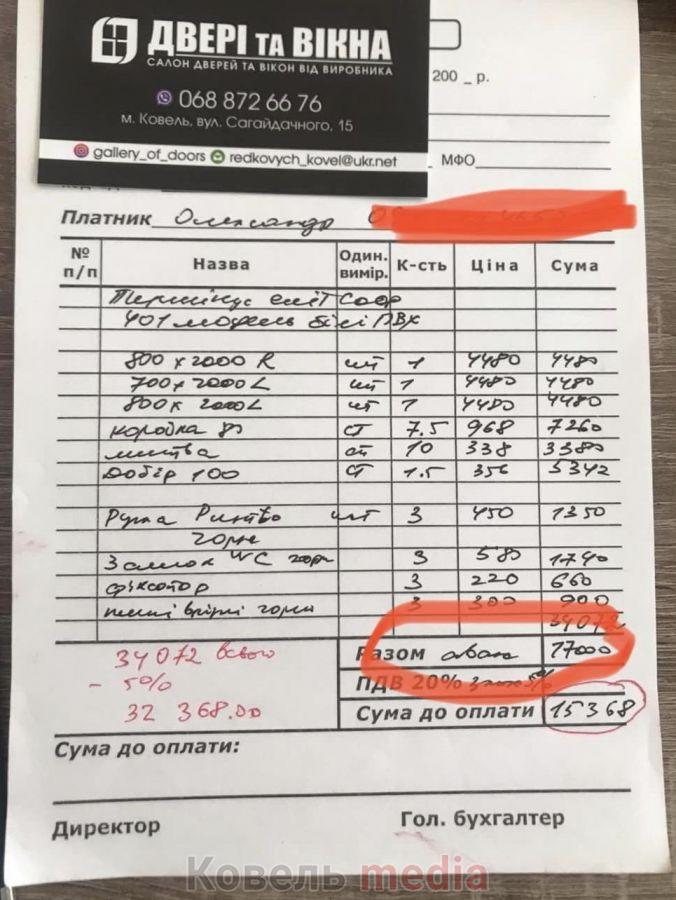 ДВЕРІ ТА ВІКНА
САЛОН ДВЕРЕЙ ТА ВІКОН ВІД ВИРОБНИКА
068 872 66 76
м. Ковель, вул. Сагайдачного, 15
gallery_of_doors redkovych_kovel@ukr.net
200 _ р.
МФО
Платник Олександр
№ п/п Назва Один. вимір. К-сть Ціна Сума
Термінус еліт
401 модель білі ПВХ
800 x 2000 R шт 1 4480 4480
700 x 2000 L шт 1 4480 4480
800 x 2000 L шт 1 4480 4480
коробка 80 ст 7.5 968 7260
лиштва ст 10 338 3380
Добір 100 ст 1.5 356 5342
Ручка шт 3 450 1350
чорн
Замок WC чорн 3 580 1740
фіксатор 3 220 660
чорні 3 300 900
34072
Разом аванс 17000
ПДВ 20% 5%
Сума до оплати 15368
34072 всього
- 5%
32 368.00
Сума до оплати:
Директор Гол. бухгалтер
Ковель media